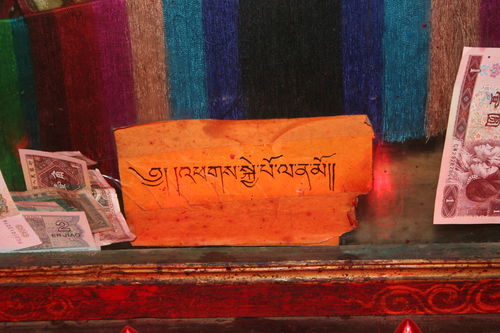 ༄། །འཕགས་སྐྱེ་པོ་ལ་ན་མོ།།
2
ER JIAO